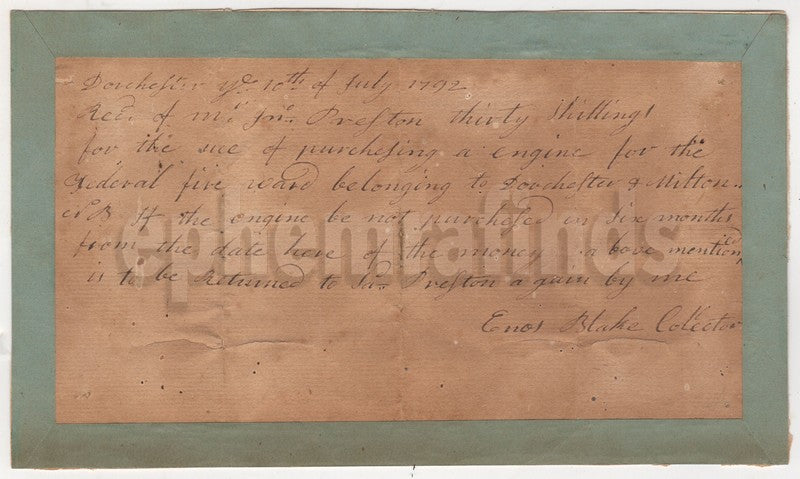 Dorchester ye. 10th of July 1792
Recd. of Mr. Jno. Preston thirty Shillings
for the use of purchesing a engine for the
Federal fire ward belonging to Dorchester & Milton
N.B If the engine be not purchesed in six months
from the date here of the money above mention'd
is to be Returned to Sd. Preston again by me
Enos Blake Colector
ephemrafinds